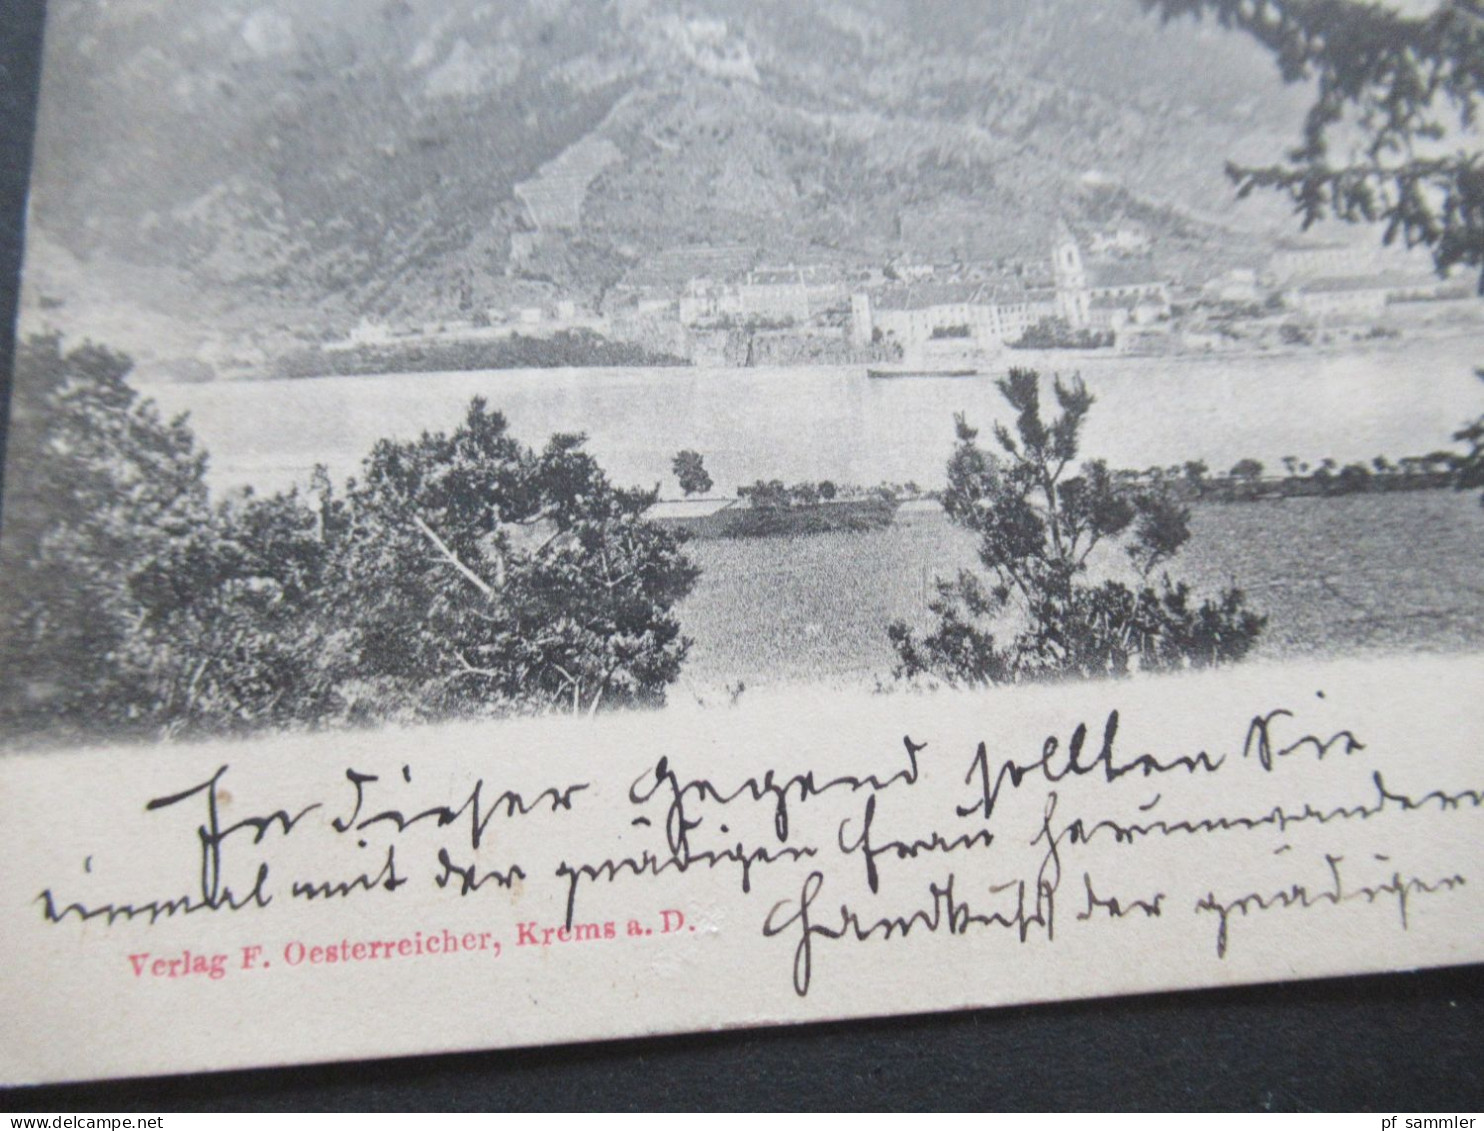 In dieser Gegend sollten Sie
einmal mit der gnädigen Frau herumwandern
Handkuss der gnädigen
Verlag F. Oesterreicher, Krems a. D.
pf_sammler